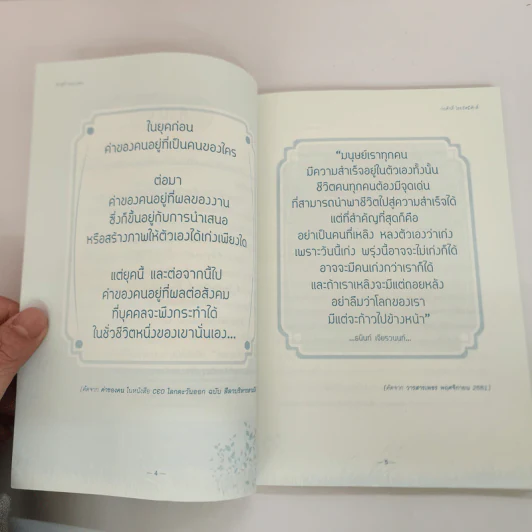 ในยุคก่อน
ค่าของคนอยู่ที่เป็นคนของใคร
ต่อมา
ค่าของคนอยู่ที่ผลของงาน
ซึ่งก็ขึ้นอยู่กับการนำเสนอ
หรือสร้างภาพให้ตัวเองได้เก่งเพียงใด
แต่ยุคนี้ และต่อจากนี้ไป
ค่าของคนอยู่ที่ผลต่อสังคม
ที่บุคคลจะพึงกระทำได้
ในชั่วชีวิตหนึ่งของเขานั่นเอง...
(คัดจาก ค่าของคน ในหนังสือ CEO โลกตะวันออก ฉบับ
— 4 —
“มนุษย์เราทุกคน
มีความสำเร็จอยู่ในตัวเองทั้งนั้น
ชีวิตคนทุกคนต้องมีจุดเด่น
ที่สามารถนำพาชีวิตไปสู่ความสำเร็จได้
แต่ที่สำคัญที่สุดก็คือ
อย่าเป็นคนที่เหลิง หลงตัวเองว่าเก่ง
เพราะวันนี้เก่ง พรุ่งนี้อาจจะไม่เก่งก็ได้
อาจจะมีคนเก่งกว่าเราก็ได้
และถ้าเราเหลิงจะมีแต่ถอยหลัง
อย่าลืมว่าโลกของเรา
มีแต่จะก้าวไปข้างหน้า”
...ธนินท์ เจียรวนนท์...
(คัดจาก พฤศจิกายน 2551)